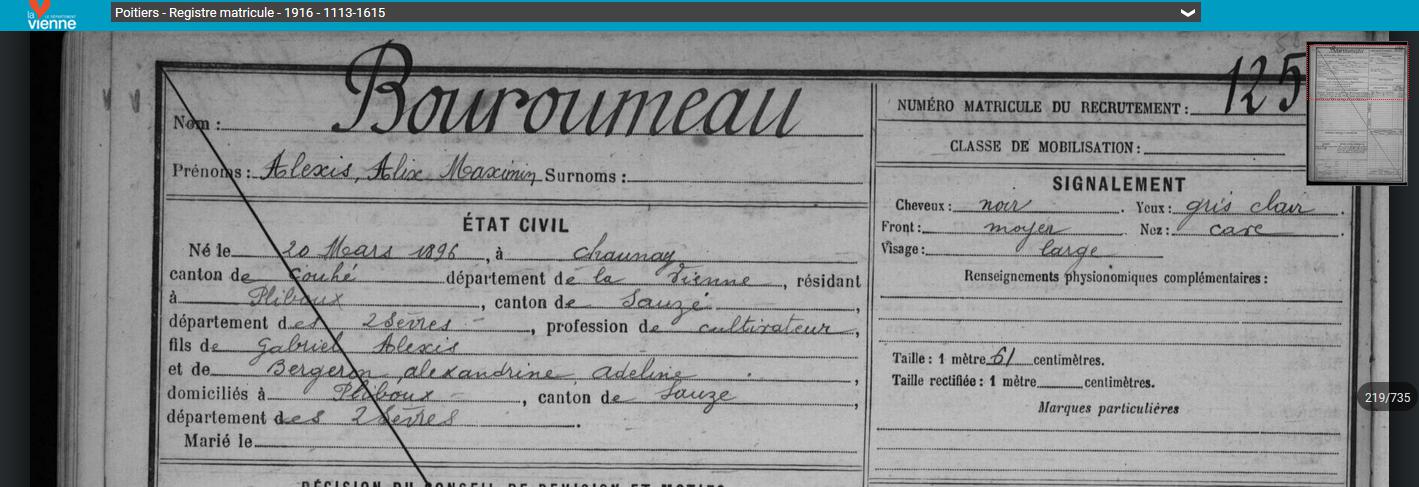 la vienne LE DÉPARTEMENT
Poitiers - Registre matricule - 1916 - 1113-1615
Nom : Bouroumeau
Prénoms : Alexis, Alix Maximin Surnoms :
ÉTAT CIVIL
Né le 20 Mars 1896, à chaunay
canton de Couhé département de la Vienne, résidant
à Pliboux, canton de Sauzé,
département des 2 Sèvres, profession de cultivateur,
fils de Gabriel Alexis
et de Bergeron alexandrine, adeline,
domiciliés à Pliboux, canton de Sauze,
département des 2 Sevres.
Marié le
DÉCISION DU CONSEIL DE REVISION ET MOTIFS
NUMÉRO MATRICULE DU RECRUTEMENT : 125
CLASSE DE MOBILISATION :
SIGNALEMENT
Cheveux : noir. Yeux : gris clair.
Front : moyen. Nez : cave.
Visage : large
Renseignements physionomiques complémentaires :
Taille : 1 mètre 61 centimètres.
Taille rectifiée : 1 mètre centimètres.
Marques particulières
219/735